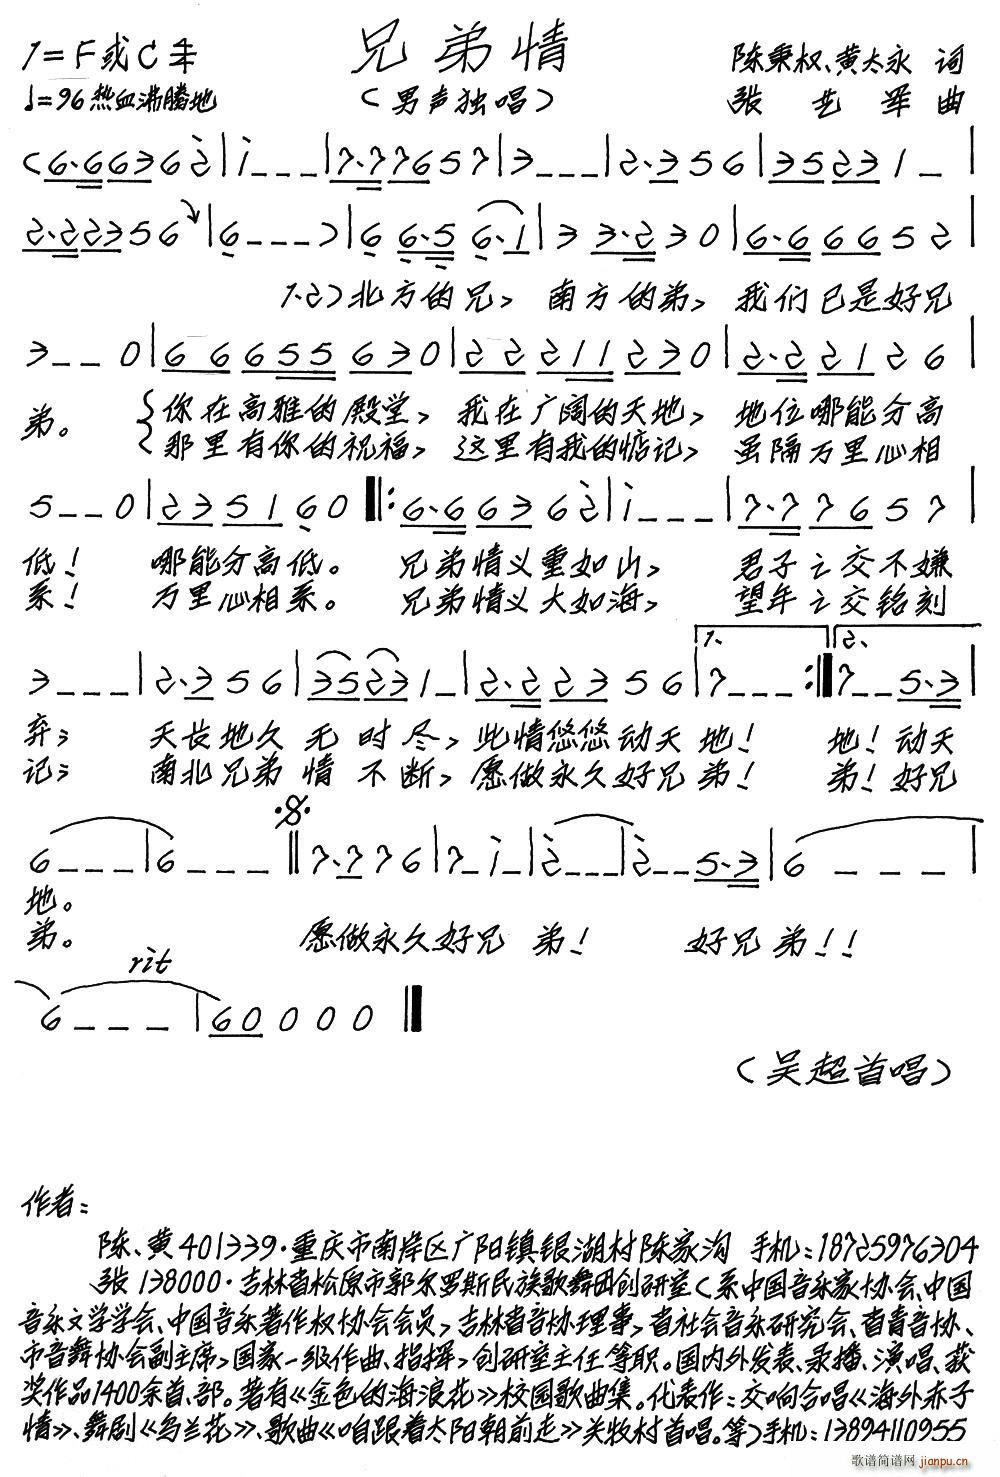 兄弟情
1=F或C 4/4
陈秉权、黄太永 词
♩=96 热血沸腾地
(男声独唱)
张艺军 曲
(6·66362|i---|7·77657|3---|2·356|35231-|
2·22356|6---)|6 6·5 6·1|3 3·230|6·6 6652|
1、2)北方的兄, 南方的弟, 我们已是好兄
3--0|6 6655 630|2 2211 230|2·2 2126|
弟。 你在高雅的殿堂, 我在广阔的天地, 地位哪能分高
那里有你的祝福, 这里有我的惦记, 虽隔万里心相
5--0|235160‖:6·66362|i---|7·77657|
低! 哪能分高低。 兄弟情义重如山, 君子之交不嫌
系! 万里心相系。 兄弟情义大如海, 望年之交铭刻
1、 2、
3---|2·356|35231-|2·22356|7---:‖7--5·3|
弃; 天长地久无时尽, 此情悠悠动天地! 地!动天
记; 南北兄弟情不断, 愿做永久好兄弟! 弟!好兄
6---|6---‖7·776|7-i-|2---|2--5·3|6---|
地。
弟。 愿做永久好兄弟! 好兄弟!!
rit
6---|60000‖
(吴超首唱)
作者:
陈、黄401339·重庆市南岸区广阳镇银湖村陈家沟 手机:18725976304
张 138000·吉林省松原市郭尔罗斯民族歌舞团创研室(系中国音乐家协会、中国
音乐文学学会、中国音乐著作权协会会员,吉林省音协理事,省社会音乐研究会、省青音协、
市音舞协会副主席,国家一级作曲、指挥,创研室主任等职。国内外发表、录播、演唱、获
奖作品1400余首、部。著有《金色的海浪花》校园歌曲集。代表作:交响合唱《海外赤子
情》、舞剧《乌兰花》、歌曲《咱跟着太阳朝前走》关牧村首唱。等)手机:13894110955
歌谱简谱网 jianpu.cn